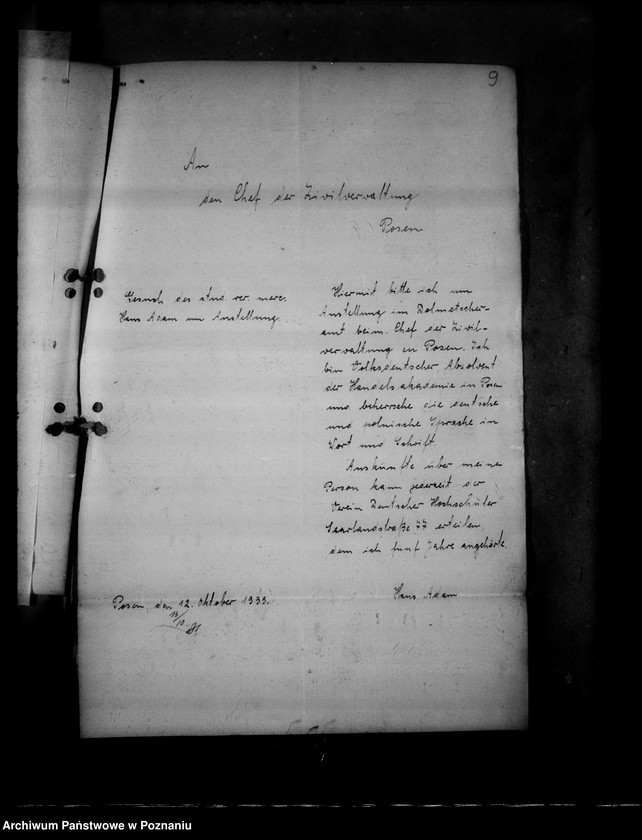 9
An
den Chef der Zivilverwaltung
Posen
Gesuch des stud. rer. merc.
Hans Adam um Anstellung.
Hiermit bitte ich um
Anstellung im Dolmetscher-
amt beim Chef der Zivil-
verwaltung zu Posen. Ich
bin Volksdeutscher, Absolvent
der Handelsakademie in Posen
und beherrsche die deutsche
und polnische Sprache in
Wort und Schrift.
Auskünfte über meine
Person kann jederzeit der
Verein Deutscher Hochschüler
Saarlandstraße 77 erteilen,
dem ich fünf Jahre angehörte.
Posen, den 12. Oktober 1939.
Hans Adam
Archiwum Państwowe w Poznaniu